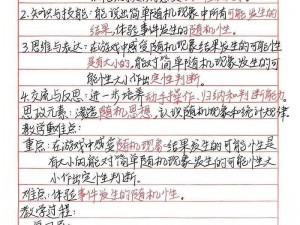 2.知识与技能:能说出简单随机现象中所有可能发生的
结果,体验事件发生的随机性。
3.思维与表达:在游戏中感受随机现象结果发生的可能性
是有大小的,能对简单随机现象发生的可
能性大小作出定性判断。
4.交流与反思:进一步培养动手操作、归纳和判断能力
思政元素:渗透随机思想,认识随机现象和统计规律。
教学重难点:
重点:在游戏中感受随机现象结果发生的可能性是
有大小的,能对简单随机现象发生的可能性大
小作出定性判断。
难点:体验事件发生的随机性。
教学过程: